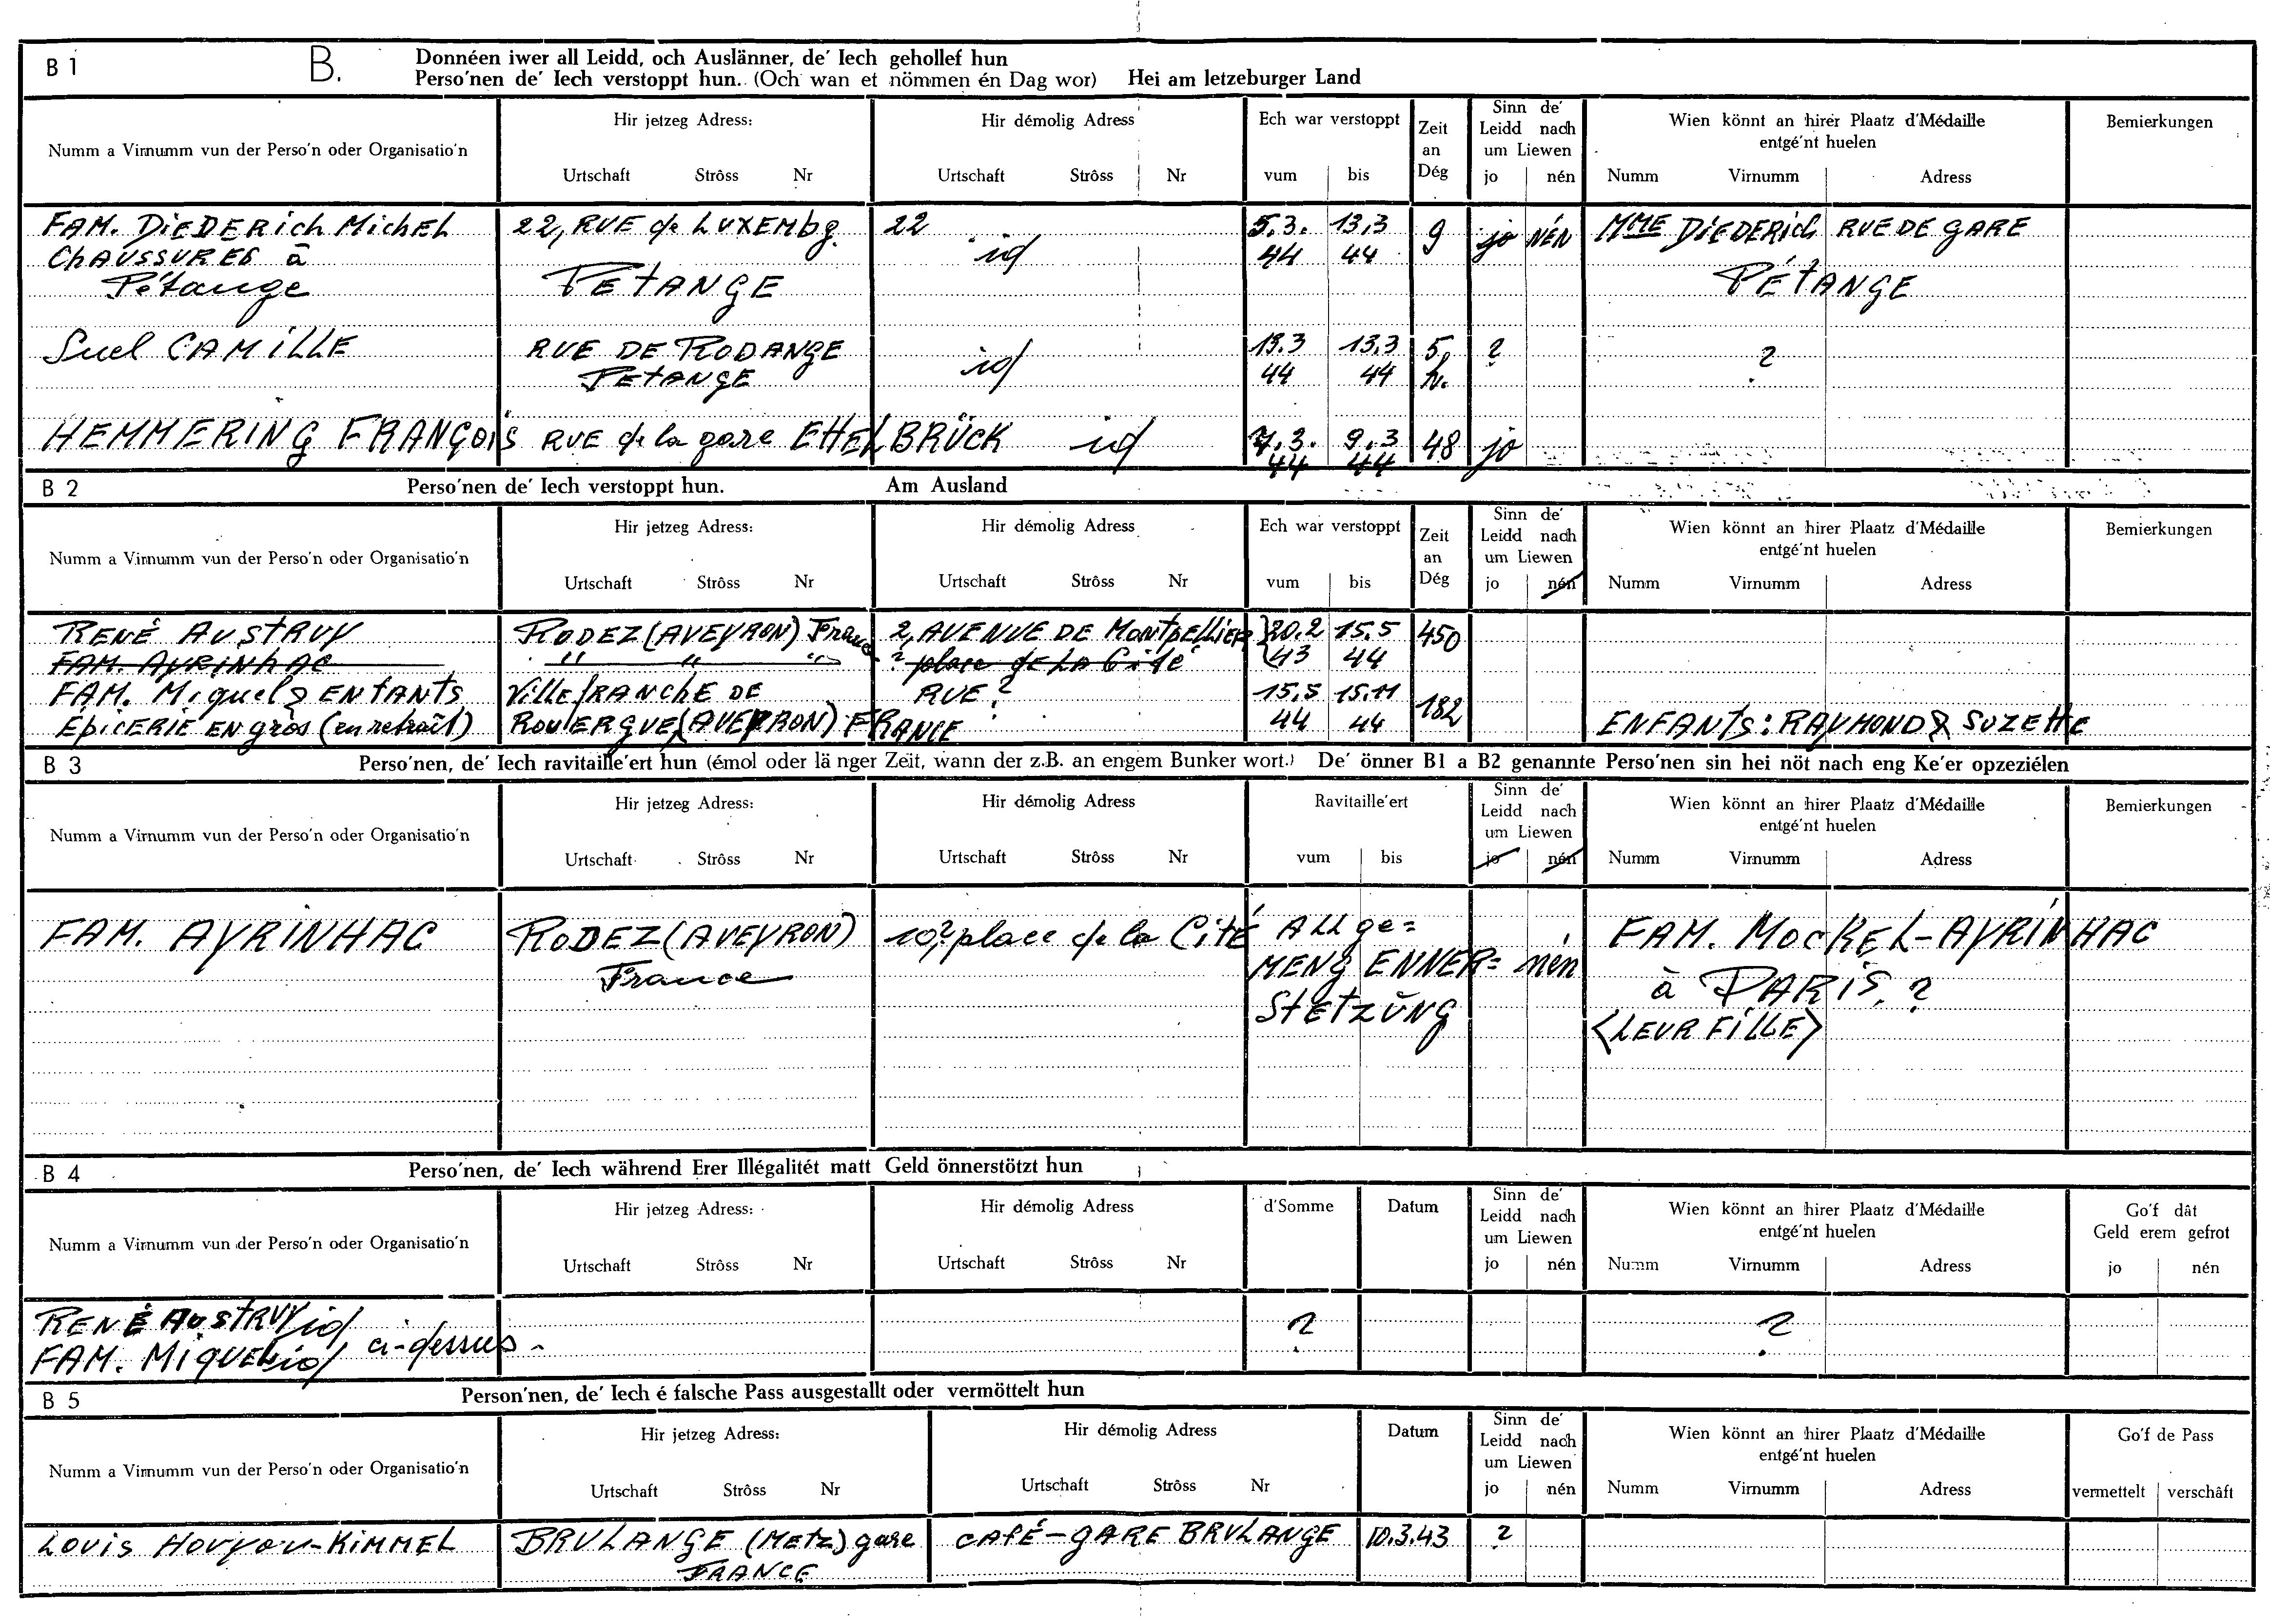 B 1 B. Donnéen iwer all Leidd, och Auslänner, de' Iech gehollef hun
Perso'nen de' Iech verstoppt hun. (Och wan et nömmen én Dag wor) Hei am letzeburger Land
Numm a Virnumm vun der Perso'n oder Organisatio'n
Hir jetzeg Adress:
Urtschaft Strôss Nr
Hir démolig Adress
Urtschaft Strôss Nr
Ech war verstoppt
vum bis
Zeit
an
Dég
Sinn de'
Leidd nach
um Liewen
jo nén
Wien könnt an hirer Plaatz d'Médaille
entgé'nt huelen
Numm Virnumm Adress
Bemierkungen
FAM. DiEDERich MichEL 22, RUE de LUXEMbg. 22 5.3. 13.3 9 jo NÉN MME DiEDERich RUE DE GARE
ChAUSSURES à id 44 44
Pétange PETANGE PÉTANGE
Suel CAMiLLE RUE DE RODANGE id 13.3 13.3 5 ? ?
PETANGE 44 44 h.
HEMMERING FRANÇOIS RUE de la gare EttELBRÜCK id 7.3. 9.3 48 jo
44 44
B 2 Perso'nen de' Iech verstoppt hun. Am Ausland
Numm a Virnumm vun der Perso'n oder Organisatio'n
Hir jetzeg Adress:
Urtschaft Strôss Nr
Hir démolig Adress
Urtschaft Strôss Nr
Ech war verstoppt
vum bis
Zeit
an
Dég
Sinn de'
Leidd nach
um Liewen
jo nén
Wien könnt an hirer Plaatz d'Médaille
entgé'nt huelen
Numm Virnumm Adress
Bemierkungen
RENÉ AUSTRUY RODEZ (AVEYRON) France 2, AVENUE DE MONTPELLIER 20.2 15.5 450
FAM. AYRINHAC " " " ? place de LA Cité 43 44
FAM. Miquel & ENFANTS VillEfRANChE DE RUE ? 15.5 15.11 182
ÉpiCERIE EN gros (en retraît) ROUERGUE, (AVEYRON) FRANCE 44 44 ENFANTS: RAYMOND & SUZEttE
B 3 Perso'nen, de' Iech ravitaille'ert hun (émol oder länger Zeit, wann der z.B. an engem Bunker wort.) De' önner B1 a B2 genannte Perso'nen sin hei nöt nach eng Ke'er opzeziélen
Numm a Virnumm vun der Perso'n oder Organisatio'n
Hir jetzeg Adress:
Urtschaft Strôss Nr
Hir démolig Adress
Urtschaft Strôss Nr
Ravitaille'ert
vum bis
Sinn de'
Leidd nach
um Liewen
jo nén
Wien könnt an hirer Plaatz d'Médaille
entgé'nt huelen
Numm Virnumm Adress
Bemierkungen
FAM. AYRINHAC RODEZ (AVEYRON) 10? place de la Cité ALLge= FAM. MOCKEL-AYRINHAC
France MENG ENNER= nén à PARiS. ?
StEtzŬNG <LEUR FiLLE>
B 4 Perso'nen, de' Iech während Erer Illégalitét matt Geld önnerstötzt hun
Numm a Virnumm vun der Perso'n oder Organisatio'n
Hir jetzeg Adress:
Urtschaft Strôss Nr
Hir démolig Adress
Urtschaft Strôss Nr
d'Somme
Datum
Sinn de'
Leidd nach
um Liewen
jo nén
Wien könnt an hirer Plaatz d'Médaille
entgé'nt huelen
Numm Virnumm Adress
Go'f dât
Geld erem gefrot
jo nén
RENÉ AUSTRUY id ci-dessus - ? ?
FAM. MiQUEL id
B 5 Person'nen, de' Iech é falsche Pass ausgestallt oder vermöttelt hun
Numm a Virnumm vun der Perso'n oder Organisatio'n
Hir jetzeg Adress:
Urtschaft Strôss Nr
Hir démolig Adress
Urtschaft Strôss Nr
Datum
Sinn de'
Leidd nach
um Liewen
jo nén
Wien könnt an hirer Plaatz d'Médaille
entgé'nt huelen
Numm Virnumm Adress
Go'f de Pass
vermettelt verschâft
LOUiS KiMMEL BRULANGE (METZ) gare CAfÉ-GARE BRULANGE 10.3.43 ?
FRANCE